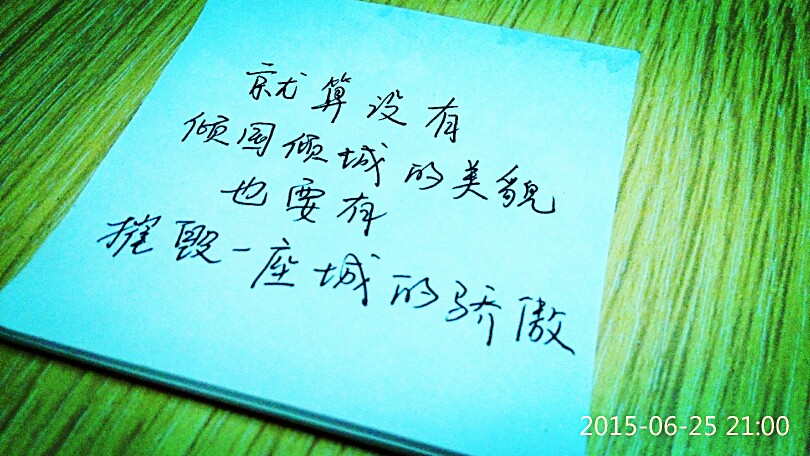 就算没有
倾国倾城的美貌
也要有
摧毁一座城的骄傲
2015-06-25 21:00